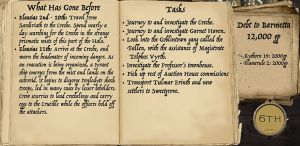 What Has Gone Before
• Eleasias 2nd - 10th: Travel from
Sandfurrth to the Creche. Spend nearly a
day searching for the Creche in the strange
prismatic mists of this part of the Vale.
• Eleasias 11th: Arrive at the Creche, and
warn the leadership of incoming danger. As
an execution is being organized, a tyrant
ship emerges from the mist and lands on the
outskirts. It begins to disgorge troglodyte shock
troops, led by many eyes by lesser beholders.
Crew scurries to load crechelings and carry
eggs to the Crucible while the officers hold off
the attackers.
Tasks
• Journey to and investigate the Creche.
• Journey to and investigate Garnet Haven.
• Look into the Goldentown gang called the
Gullen, with the assistance of Magistrate
Telphos Vyrth.
• Investigate the Professor's townhouse.
• Pick up rest of Auction House commissions
• Transport Tulmar Erinth and new
settlers to Sweetgrove.
Debt to Barnetta
12,000 gp
• Kythorn 19: 2000gp
• Flamerule 2: 2000gp
6TH